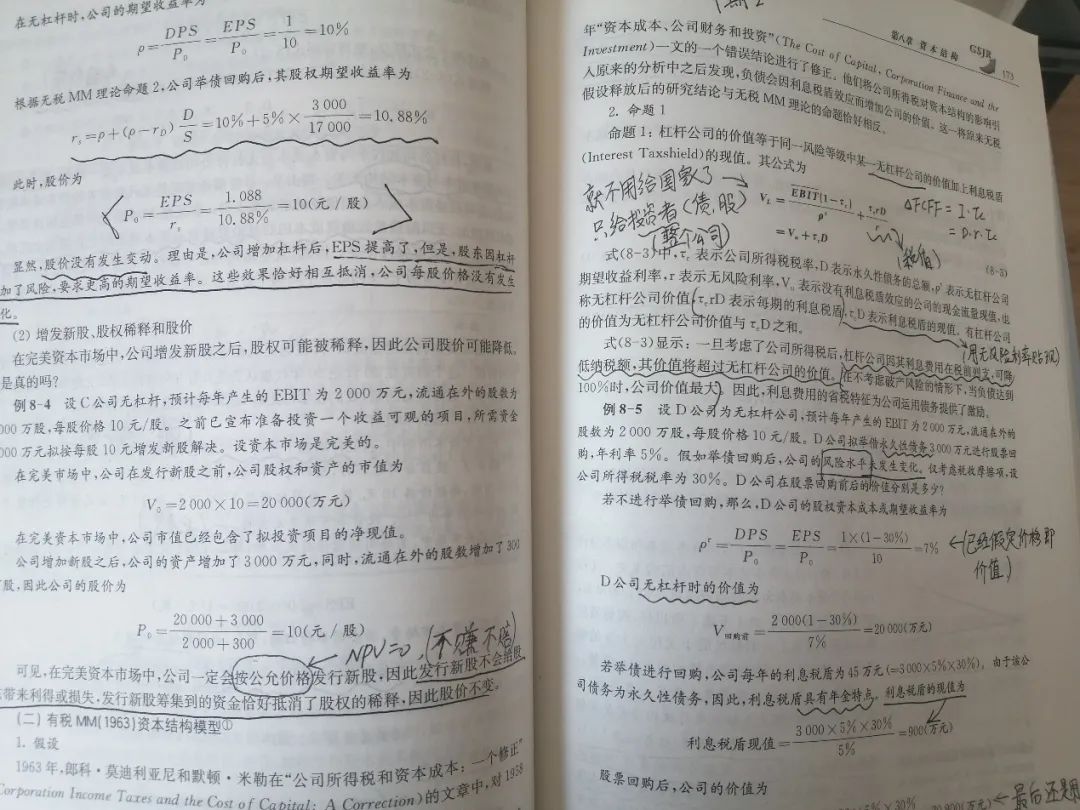 在无杠杆时，公司的期望收益率为
ρ=DPS/P₀=EPS/P₀=1/10=10%
根据无税 MM 理论命题 2，公司举债回购后，其股权期望收益率为
rₛ=ρ+(ρ−r_D)D/S=10%+5%×3 000/17 000=10.88%
此时，股价为
P₀=EPS/rₛ=1.088/10.88%=10(元/股)
显然，股价没有发生变动。理由是，公司增加杠杆后，EPS 提高了，但是，股东因杠杆
加了风险，要求更高的期望收益率。这些效果恰好相互抵消，公司每股价格没有发生
化。
(2) 增发新股、股权稀释和股价
在完美资本市场中，公司增发新股之后，股权可能被稀释，因此公司股价可能降低。
是真的吗？
例 8-4 设 C 公司无杠杆，预计每年产生的 EBIT 为 2 000 万元，流通在外的股数为
000 万股，每股价格 10 元/股。之前已宣布准备投资一个收益可观的项目，所需资金
000 万元拟按每股 10 元增发新股解决。设资本市场是完美的。
在完美资本市场中，公司在发行新股之前，公司股权和资产的市值为
V₀=2 000×10=20 000(万元)
在完美资本市场中，公司市值已经包含了拟投资项目的净现值。
公司增加新股之后，公司的资产增加了 3 000 万元，同时，流通在外的股数增加了 300
股，因此公司的股价为
P₀=20 000+3 000/2 000+300=10(元/股)
NPV=0 (不赚不赔)
可见，在完美资本市场中，公司一定会按公允价格发行新股，因此发行新股不会给股
带来利得或损失，发行新股筹集到的资金恰好抵消了股权的稀释，因此股价不变。
(二) 有税 MM(1963)资本结构模型①
1. 假设
1963 年，郎科·莫迪利亚尼和默顿·米勒在“公司所得税和资本成本：一个修正”
Corporation Income Taxes and the Cost of Capital: A Correction)的文章中，对 1958
第八章 资本结构 GSJR 173
年“资本成本、公司财务和投资”(The Cost of Capital, Corporation Finance and the
Investment)一文的一个错误结论进行了修正。他们将公司所得税对资本结构的影响引
入原来的分析中之后发现，负债会因利息税盾效应而增加公司的价值。这一将原来无税
假设释放后的研究结论与无税 MM 理论的命题恰好相反。
2. 命题 1
命题 1：杠杆公司的价值等于同一风险等级中某一无杠杆公司的价值加上利息税盾
(Interest Taxshield)的现值。其公式为
就不用给国家了
只给投资者(债、股)
(整个公司)
V_L=EBIT(1−τ_c)/ρ^τ+τ_c rD/r
=V_u+τ_c D
(8-3)
ΔFCFF=I·tc
=D·r·tc
式(8-3)中，τ_c 表示公司所得税税率，D 表示永久性债务的总额，ρ^τ 表示无杠杆公司
期望收益利率，r 表示无风险利率，V_u 表示没有利息税盾效应的公司的现金流量现值，也
称无杠杆公司价值，τ_c rD 表示每期的利息税盾，τ_c D 表示利息税盾的现值。有杠杆公司
的价值为无杠杆公司价值与 τ_c D 之和。
(用无风险利率贴现)
式(8-3)显示：一旦考虑了公司所得税后，杠杆公司因其利息费用在税前列支，可降
低纳税额，其价值将超过无杠杆公司的价值。在不考虑破产风险的情形下，当负债达到
100%时，公司价值最大。因此，利息费用的省税特征为公司运用债务提供了激励。
例 8-5 设 D 公司为无杠杆公司，预计每年产生的 EBIT 为 2 000 万元，流通在外的
股数为 2 000 万股，每股价格 10 元/股。D 公司拟举借永久性债务 3 000 万元进行股票回
购，年利率 5%。假如举债回购后，公司的风险水平未发生变化。仅考虑税收摩擦项，设
公司所得税税率为 30%。D 公司在股票回购前后的价值分别是多少？
若不进行举债回购，那么，D 公司的股权资本成本或期望收益率为
ρ^τ=DPS/P₀=EPS/P₀=1×(1−30%)/10=7%
(已经假定价格即
价值)
D 公司无杠杆时的价值为
V回购前=2 000(1−30%)/7%=20 000(万元)
若举债进行回购，公司每年的利息税盾为 45 万元(=3 000×5%×30%)。由于该公
司债务为永久性债务，因此，利息税盾具有年金特点，利息税盾的现值为
利息税盾现值=3 000×5%×30%/5%=900(万元)
股票回购后，公司的价值为
最后还是用